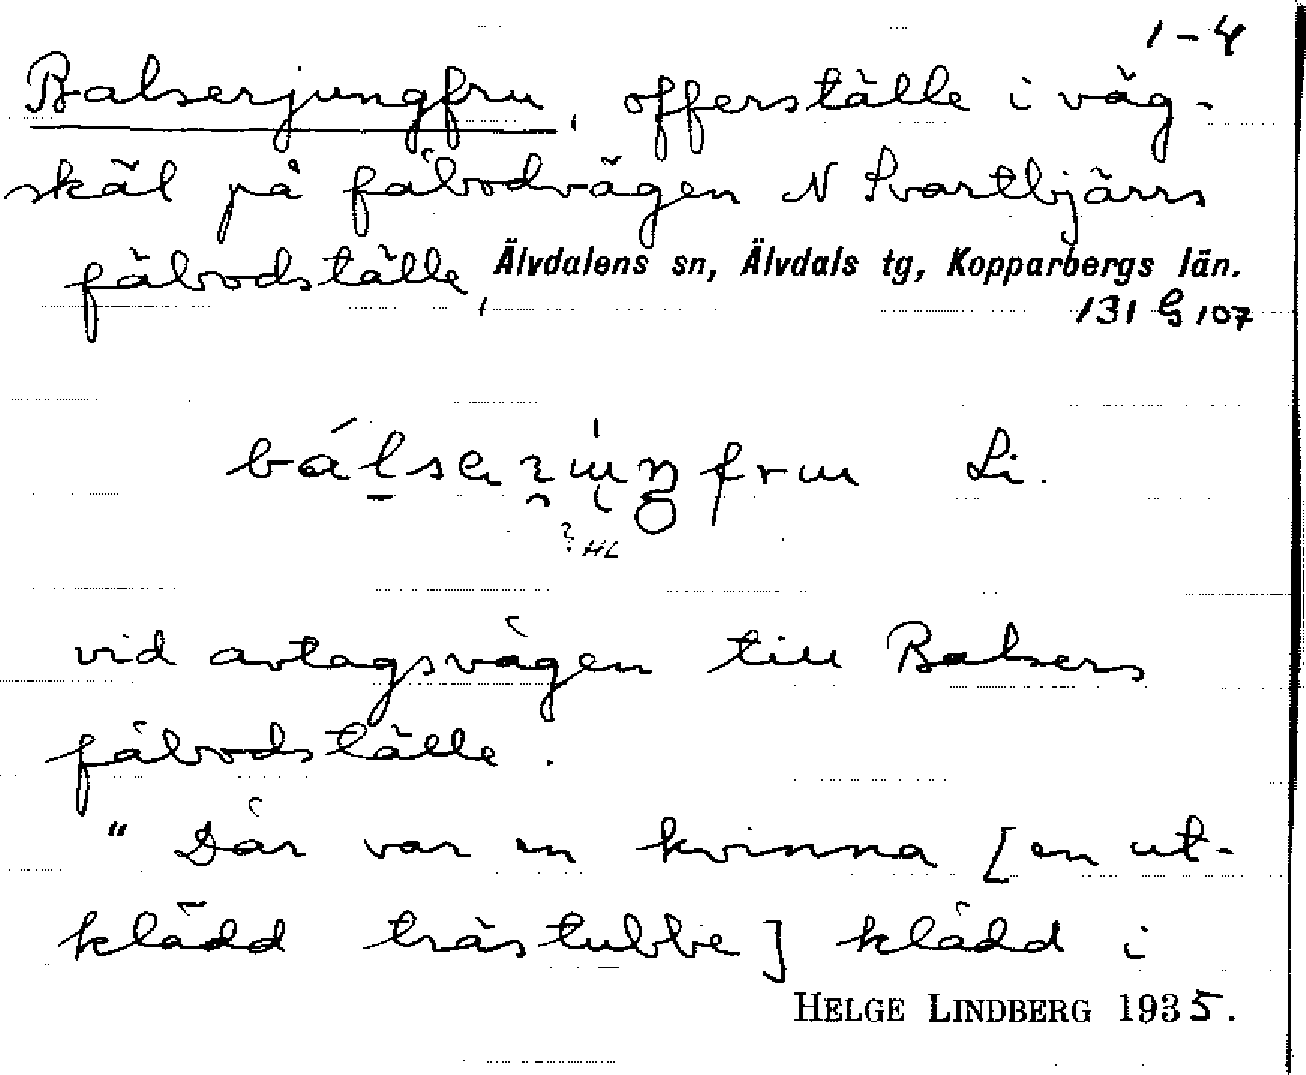 1-4
Balserjungfru, offerställe i väg-
skäl på fäbodvägen N Svartbjärrs
fäbodställe, Älvdalens sn, Älvdals tg, Kopparbergs län.
131 G 107
Li.
? HL
vid avtagsvägen till Balsers
fäbodställe.
" Där var en kvinna [en ut-
klädd trästubbe] klädd i
HELGE LINDBERG 1935.